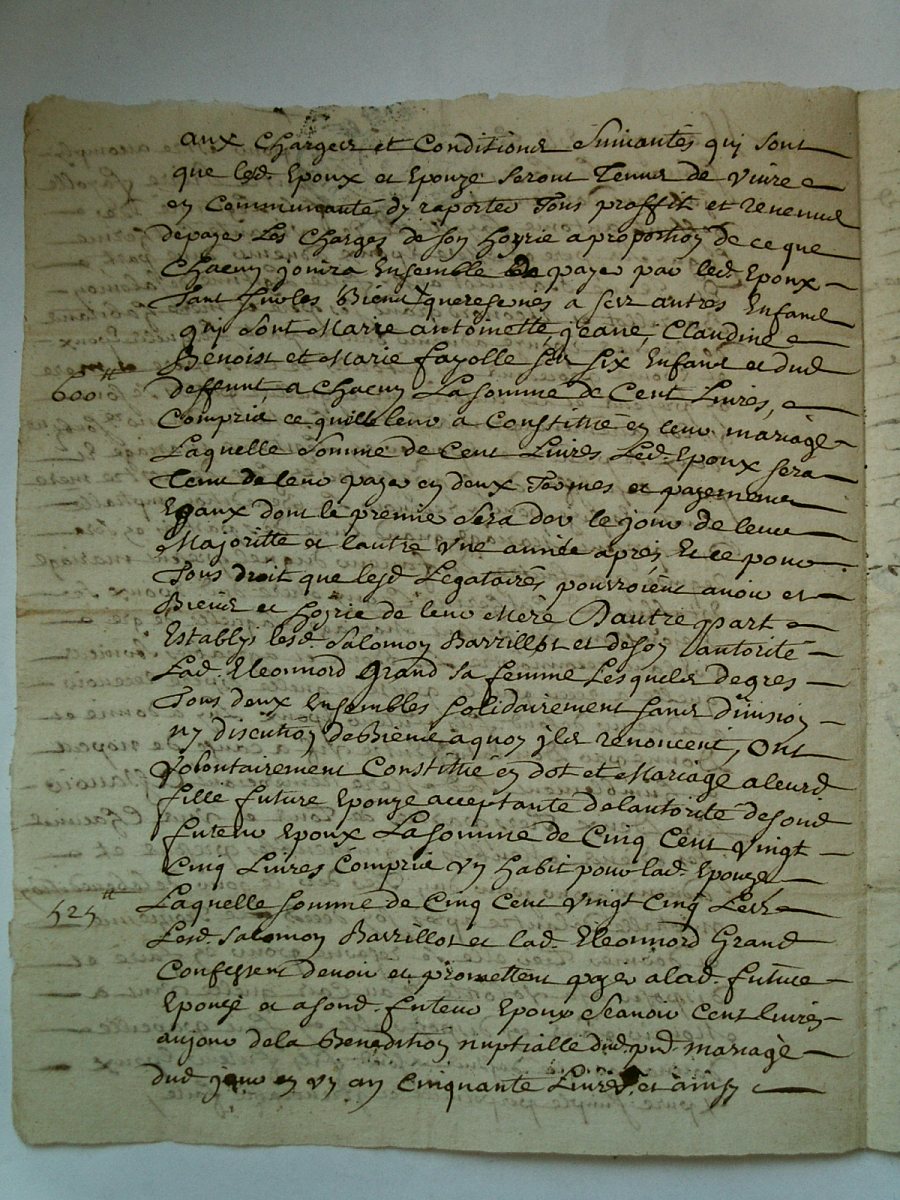 aux charges et Conditions Suivantes qui sont
que lesd. Epoux et Epouze seront Tenus de vivre
en Communauté dy raporter Tous proffit et revenus
depayer Les charges de son hoyrie a proportion de ce que
Chacun jouira Ensemble de payer par led. Epoux
Tant sur les Biens a ses autres Enfans
qui sont Marie antoinette, jeane, Claudine
Benoist et Marie fayolle ses six Enfans et dud
600tt
deffunt, a chacun La somme de Cent Livres,
Compris ce quille leur a Constitué en leur mariage
Laquelle somme de Cent Livres Led. Epoux sera
Tenu de leur payer en deux Termes et payemens
Egaux dont le premie sera dor le jour de leur
Majoritte et lautre vne année apres Et ce pour
Tous droit que lesd Legataires pourroient avoir et
Biens et hoyrie de leur Mere D'autre part
Establys lesd. Salomon Barrillot et deson autorité
Lad. Eleonnord Grand sa femme Lesquels degres
Tous deux Ensembles solidairement sans division
ny discution de Biens a quoy jls renoncent, Ont
Volontairement Constitué en dot et Mariage a leurd
fille future Epouze acceptante de lautorité desond
futeur Epoux La somme de Cinq Cent Vingt
Cinq Livres Compris vn habit pour lad. Epouze
525tt
Laquelle somme de Cinq Cent Vingt Cinq Lers
Lesd. Salomon Barrillot et lad. Eleonnord Grand
Confessent devoir et promettent payer a lad. future
Epouze et a sond. futeur Epoux Scavoir Cent livres
aujour dela Benediction nuptialle dud. pnd. mariage
dud jour en vn an Cinquante Livres, et ainsy